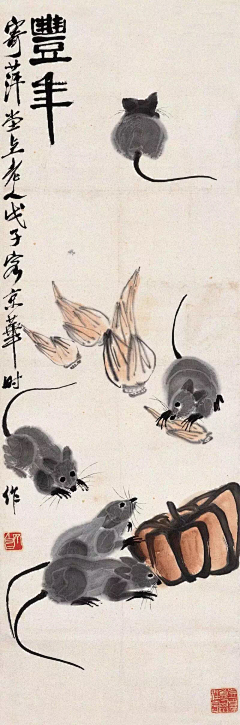 豐年
寄萍堂上老人戊子客京華時
作